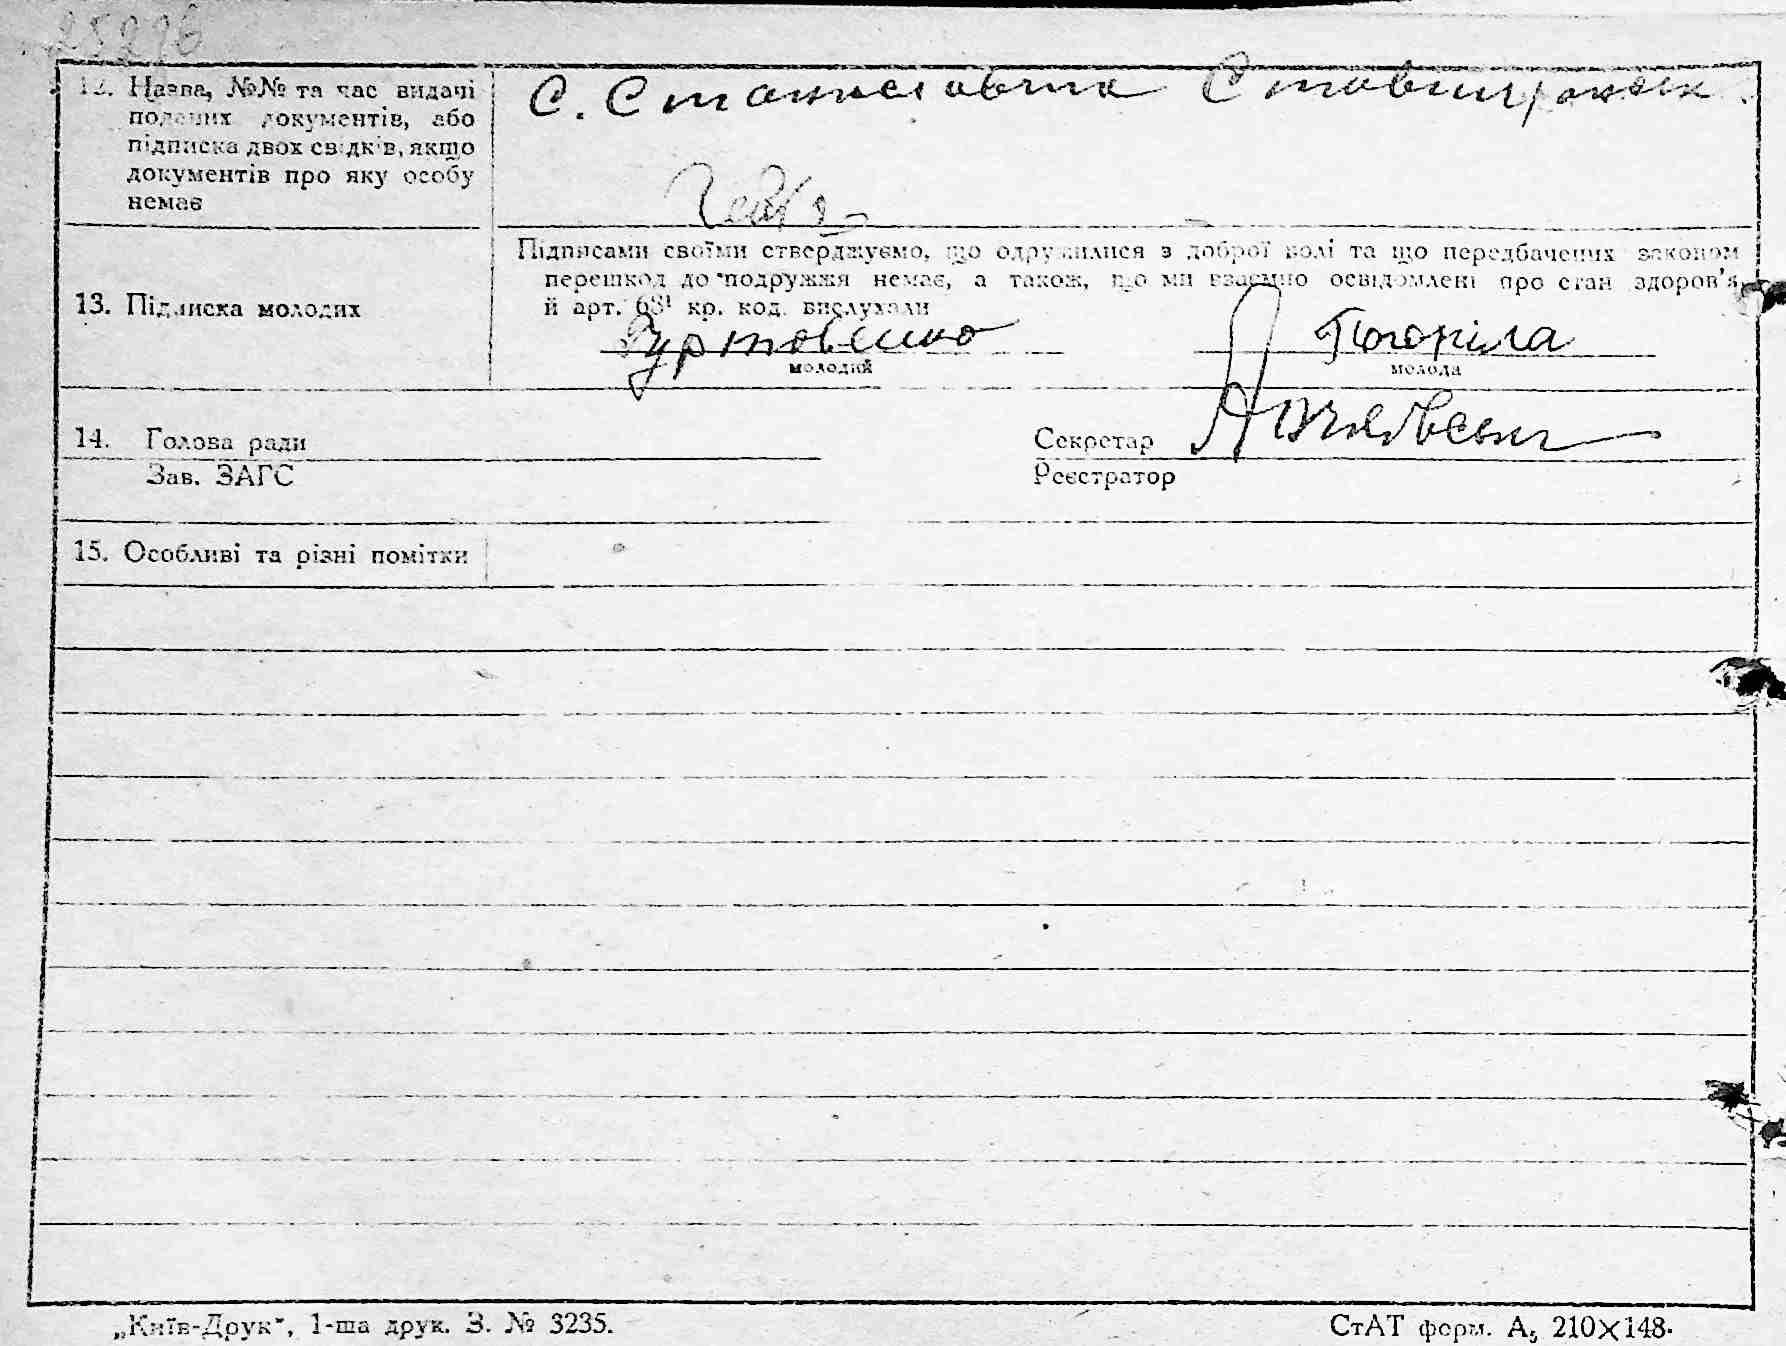 25226
12. Назва, №№ та час видачі поданих документів, або підписка двох свідків, якщо документів про яку особу немає
С. Станиславчик Ставищанськ.
13. Підписка молодих
Підписами своїми стверджуємо, що одружилися з доброї волі та що передбачених законом
перешкод до подружжя немає, а також, що ми взаємно освідомлені про стан здоров'я,
й арт. 68¹ кр. код. вислухали
Погоріла
молодий
молода
14. Голова ради
Секретар
Зав. ЗАГС
Реєстратор
15. Особливі та різні помітки
„Київ-Друк", 1-ша друк. З. № 3235.
СтАТ форм. А₅ 210×148.